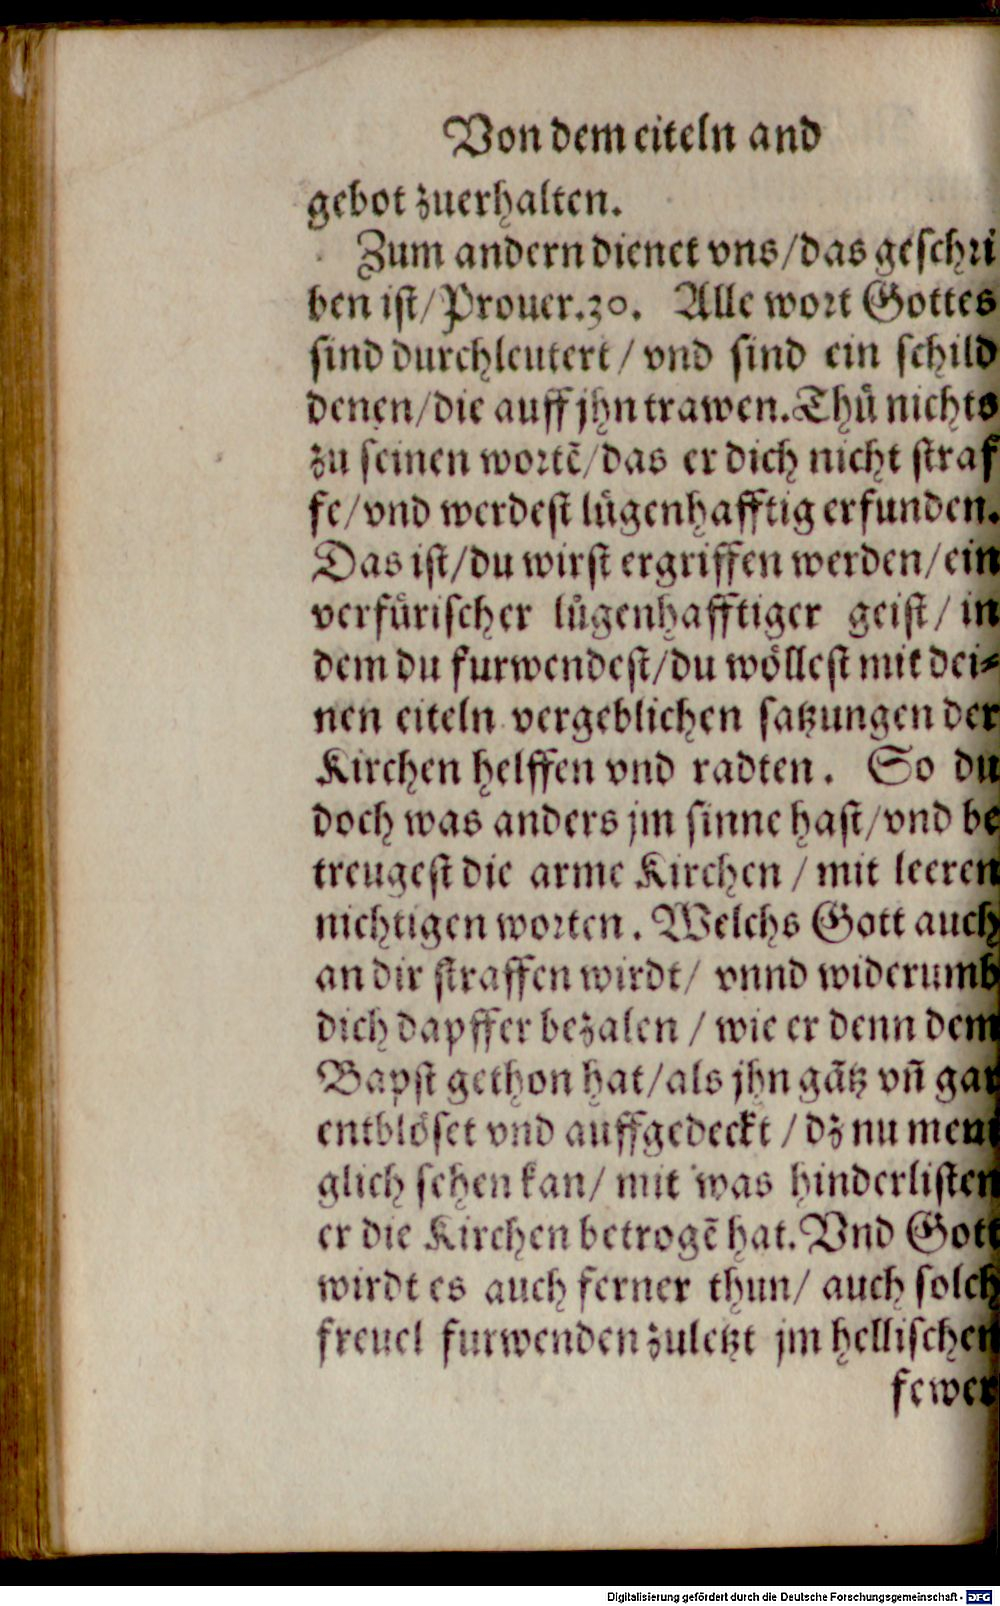 Von dem eiteln and
gebot zuerhalten.
Zum andern dienet vns/das geschri
ben ist/Prouer.30. Alle wort Gottes
sind durchleutert/ vnd sind ein schild
denen/die auff jhn trawen. Thů nichts
zu seinen wortẽ/das er dich nicht straf
fe/vnd werdest lůgenhafftig erfunden.
Das ist/du wirst ergriffen werden/ein
verfůrischer lůgenhafftiger geist/ in
dem du furwendest/du wöllest mit dei⸗
nen eiteln vergeblichen satzungen der
Kirchen helffen vnd radten. So du
doch was anders jm sinne hast/vnd be
treugest die arme Kirchen / mit leeren
nichtigen worten. Welchs Gott auch
an dir straffen wirdt/ vnnd widerumb
dich dapffer bezalen / wie er denn dem
Bapst gethon hat/als jhn gãtz vñ gar
entblöset vnd auffgedeckt / dz nu meni
glich sehen kan/ mit was hinderlisten
er die Kirchen betrogẽ hat. Vnd Gott
wirdt es auch ferner thun/ auch solch
freuel furwenden zuletzt jm hellischen
fewer
Digitalisierung gefördert durch die Deutsche Forschungsgemeinschaft - DFG